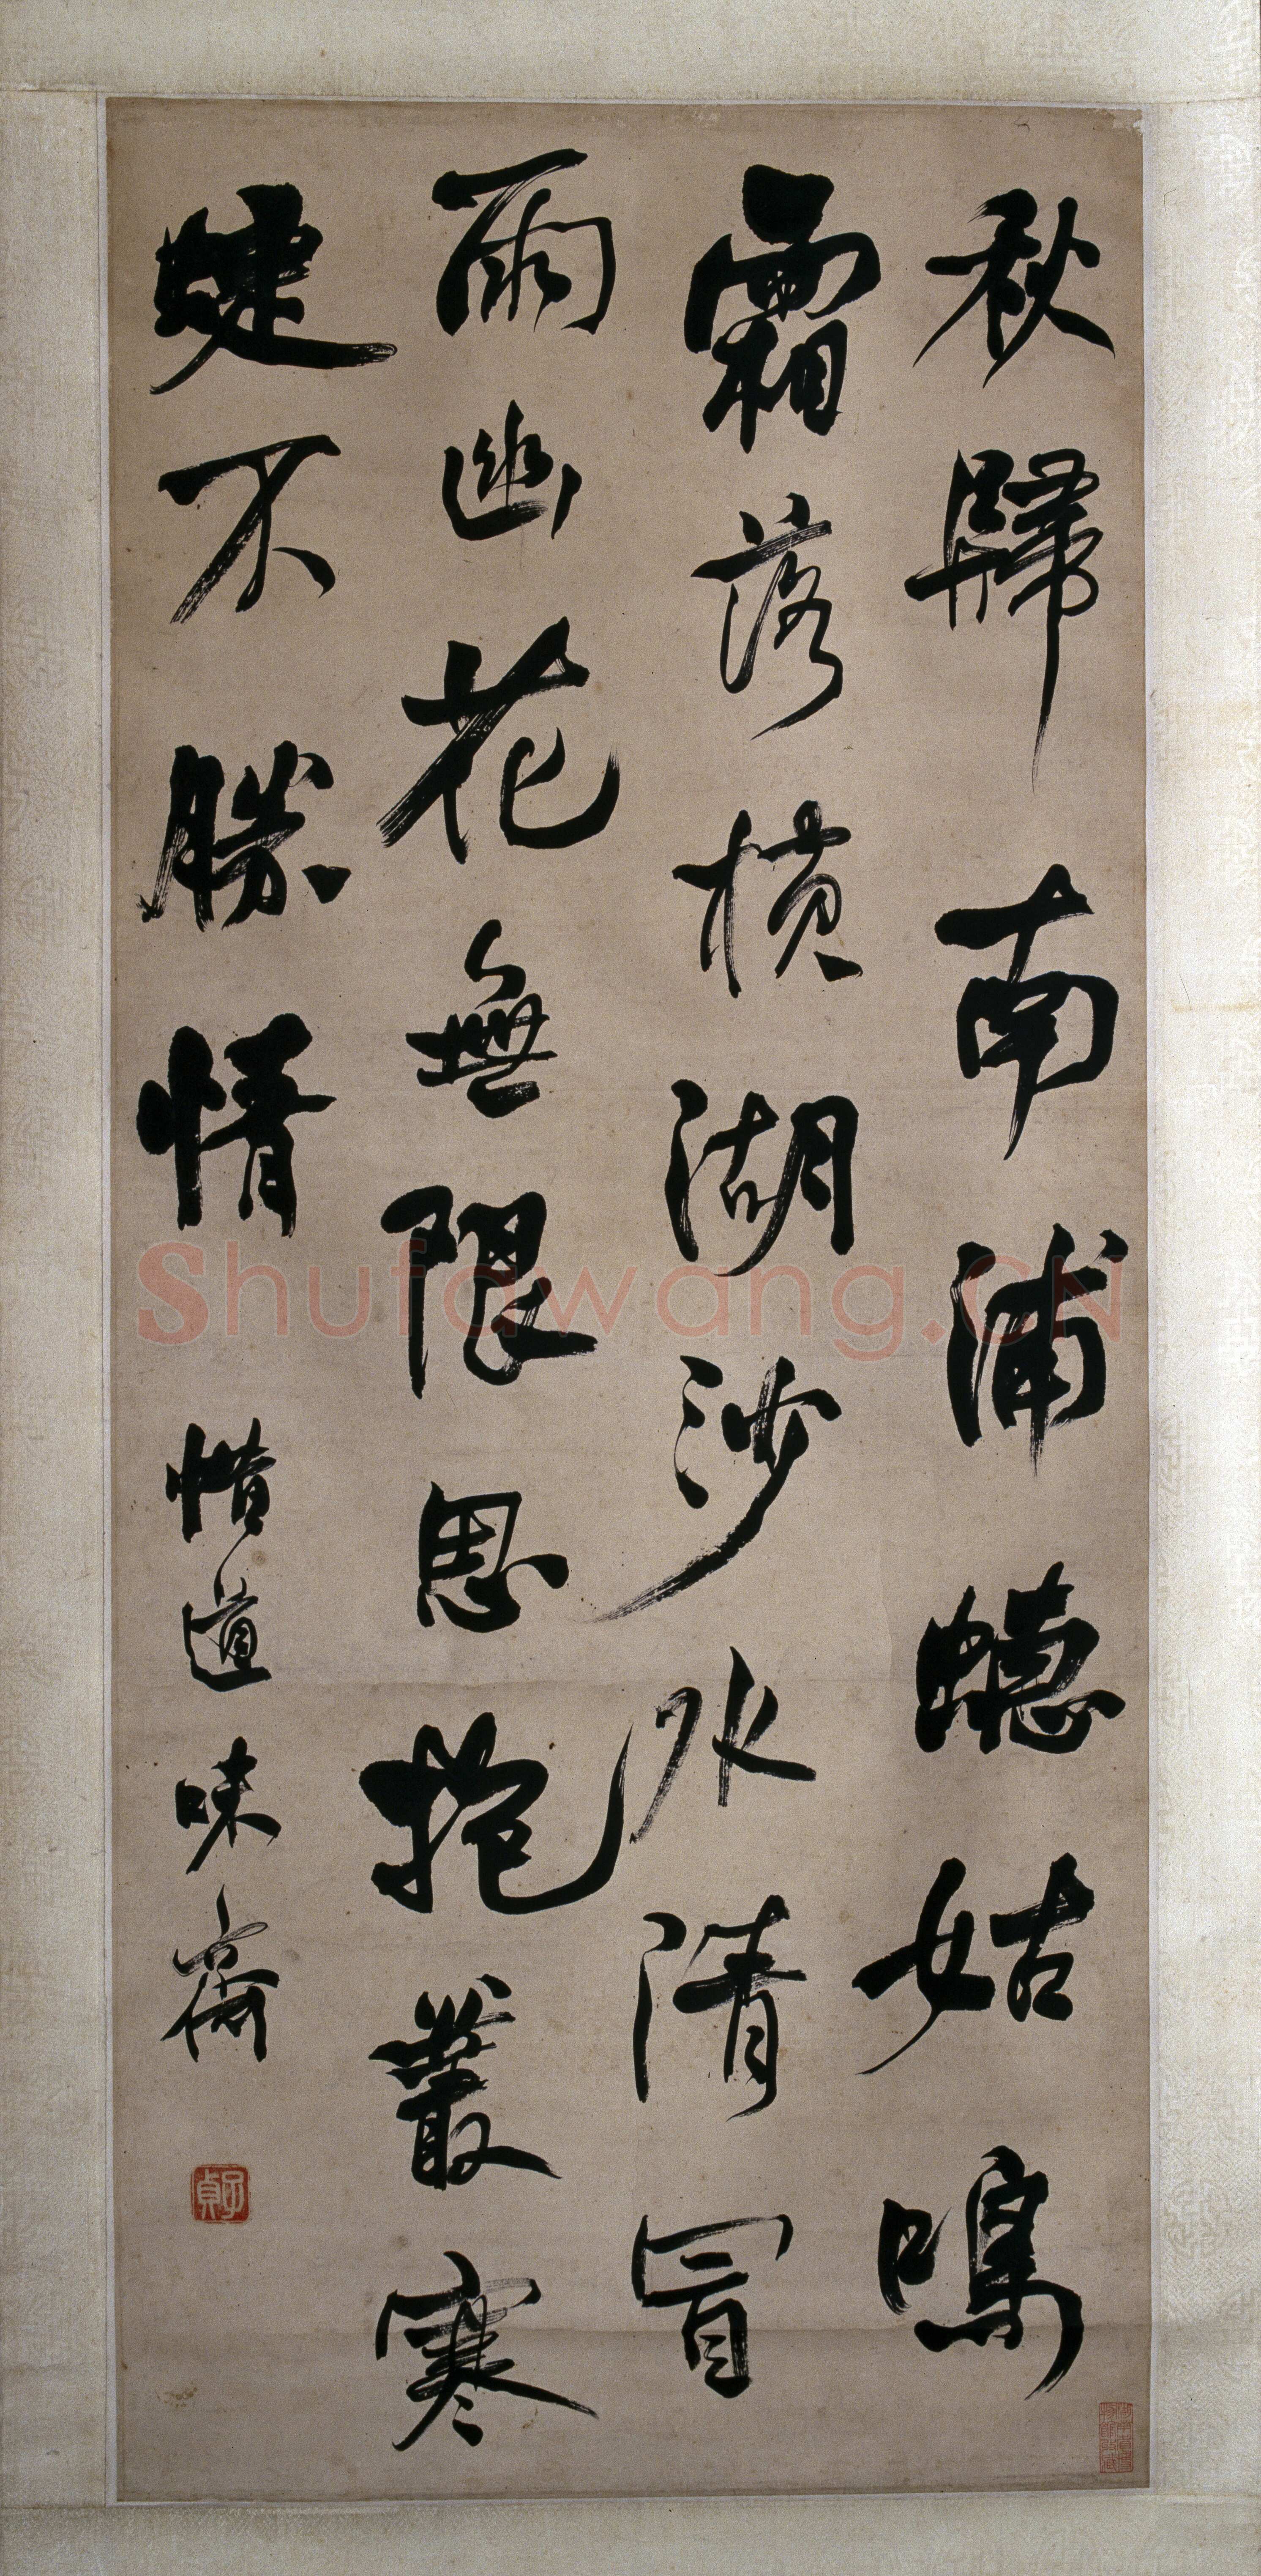 秋歸南浦蟪姑鳴
霜落橫湖沙水清冒
雨幽花無限思抱叢寒
蜨不勝情 惜道味齋
子貞
Shufawang.CN